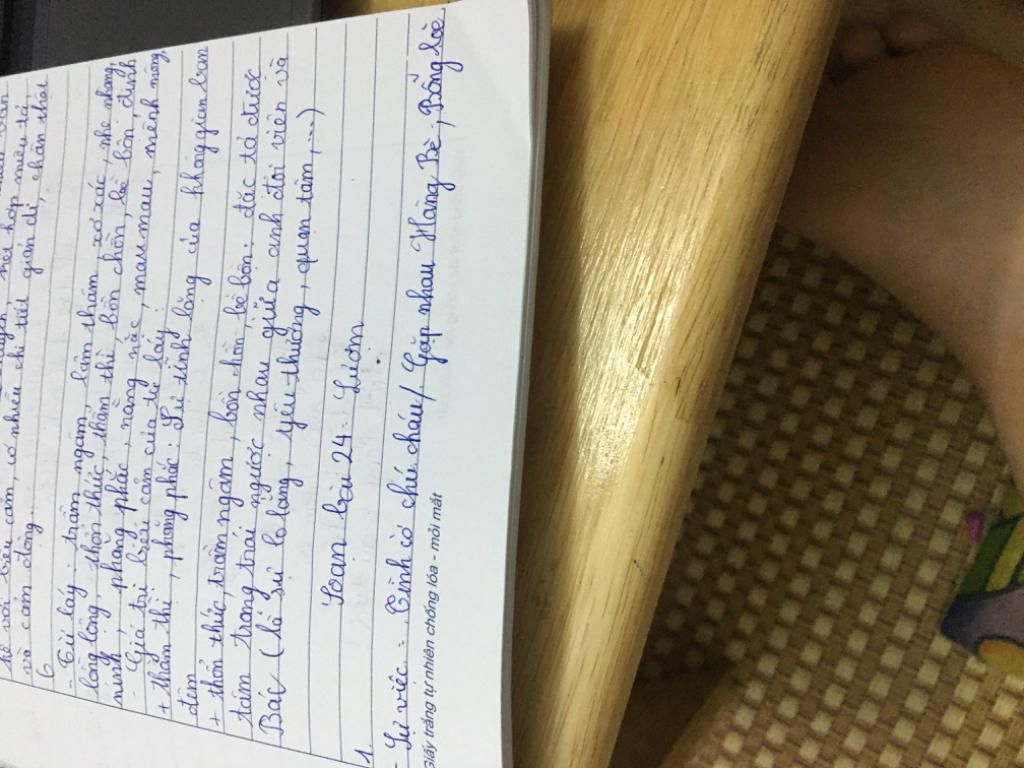 kể với biểu cảm, có nhiều chi tiết giản dị, chân thật
và cảm động.
6
- Từ láy: trằm ngâm, lâm thâm, xơ xác, nhẹ nhàng,
lồng lộng, thổn thức, thầm thì, bồn chồn, bề bộn, đinh
ninh, phăng phắc, nằng nặc, mau mau, mênh mông,
- Giá trị biểu cảm của từ láy:
+ thầm thì, phăng phắc: Sự tĩnh lặng của không gian ban
đêm
+ thổn thức, trằm ngâm, bồn chồn, bề bộn: đặc tả được
tâm trạng trái ngược nhau giữa anh đội viên và
Bác (là sự lo lắng, yêu thương, quan tâm,...)
Soạn bài 24: Lượm
1.
- Sự việc: Tình cờ chú cháu / Gặp nhau Hàng Bè,
Giấy trắng tự nhiên chống lóa - mỏi mắt